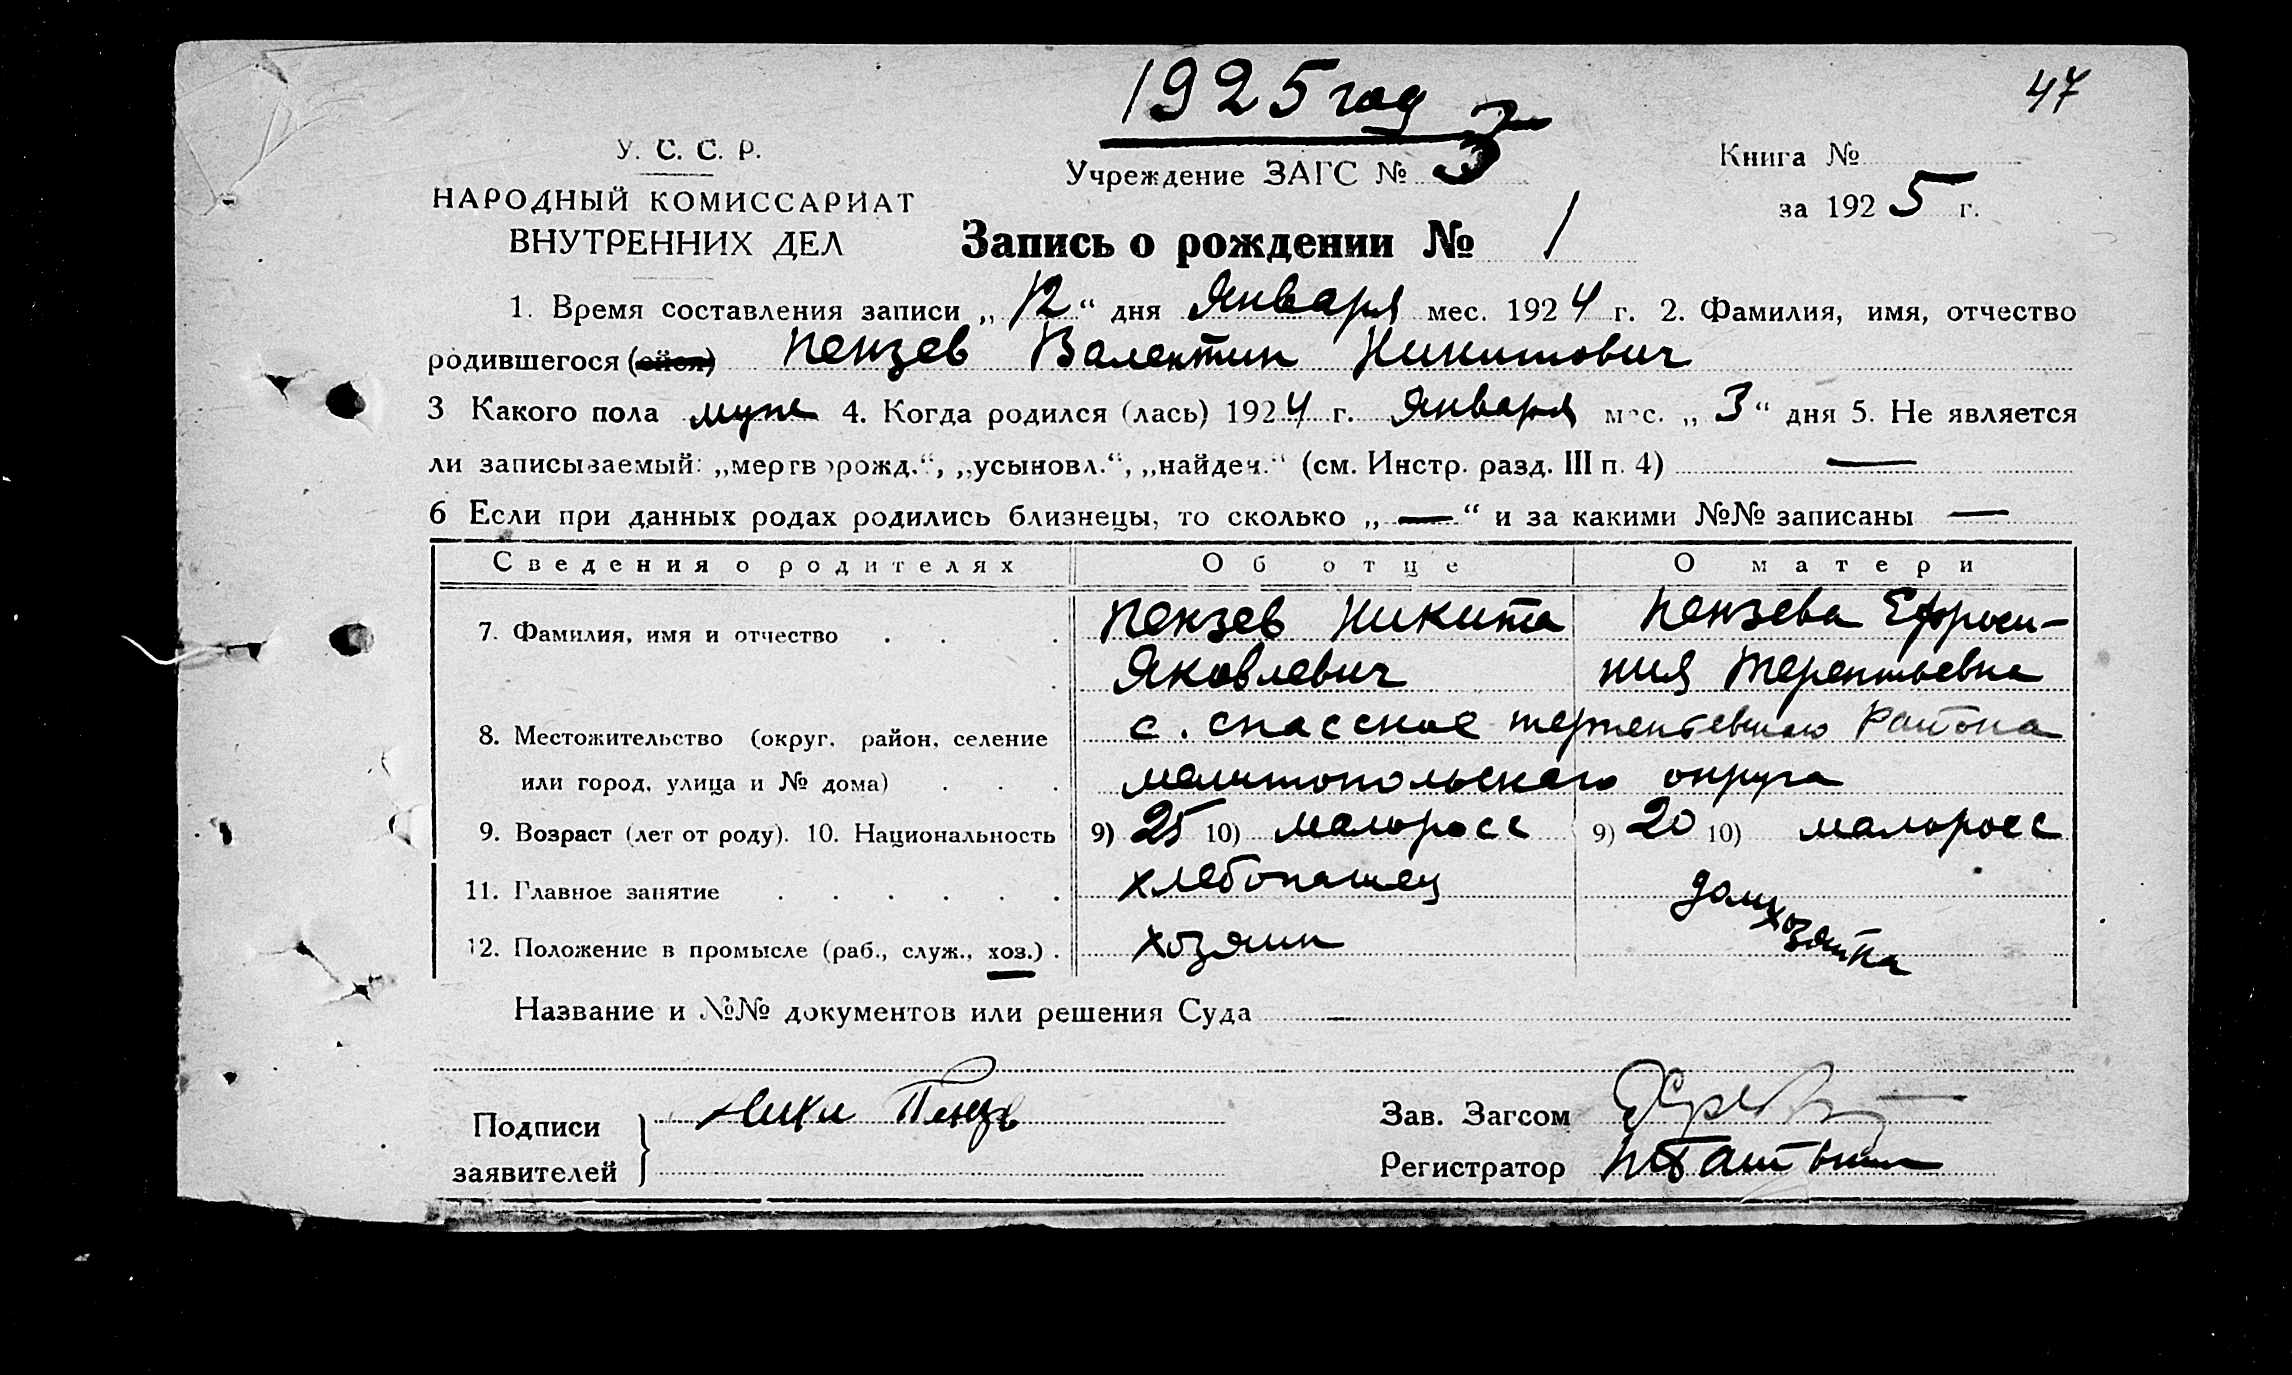 1925 год
47
У. С. С. Р.
НАРОДНЫЙ КОМИССАРИАТ
ВНУТРЕННИХ ДЕЛ
Учреждение ЗАГС № 3
Книга №
за 1925 г.
Запись о рождении № 1
1. Время составления записи „12“ дня Января мес. 1924 г. 2. Фамилия, имя, отчество
родившегося (ейся) Пензев Валентин Никитович
3 Какого пола муж 4. Когда родился (лась) 1924 г. Января мес. „3“ дня 5. Не является
ли записываемый: „мертворожд.“, „усыновл.“, „найден.“ (см. Инстр. разд. III п. 4) —
6 Если при данных родах родились близнецы, то сколько „—“ и за какими №№ записаны —
Сведения о родителях Об отце О матери
7. Фамилия, имя и отчество . . . Пензев Никита Пензева Ефроси-
Яковлевич ния Терентьевна
8. Местожительство (округ, район, селение с. спасское района
или город, улица и № дома) . . . мелитопольского округа
9. Возраст (лет от роду). 10. Национальность 9) 25 10) малоросс 9) 20 10) малоросс
11. Главное занятие . . . . . . хлебопашец домхозяйка
12. Положение в промысле (раб., служ., хоз.) . хозяин
Название и №№ документов или решения Суда —
Подписи заявителей Ники Пензв
Зав. Загсом
Регистратор